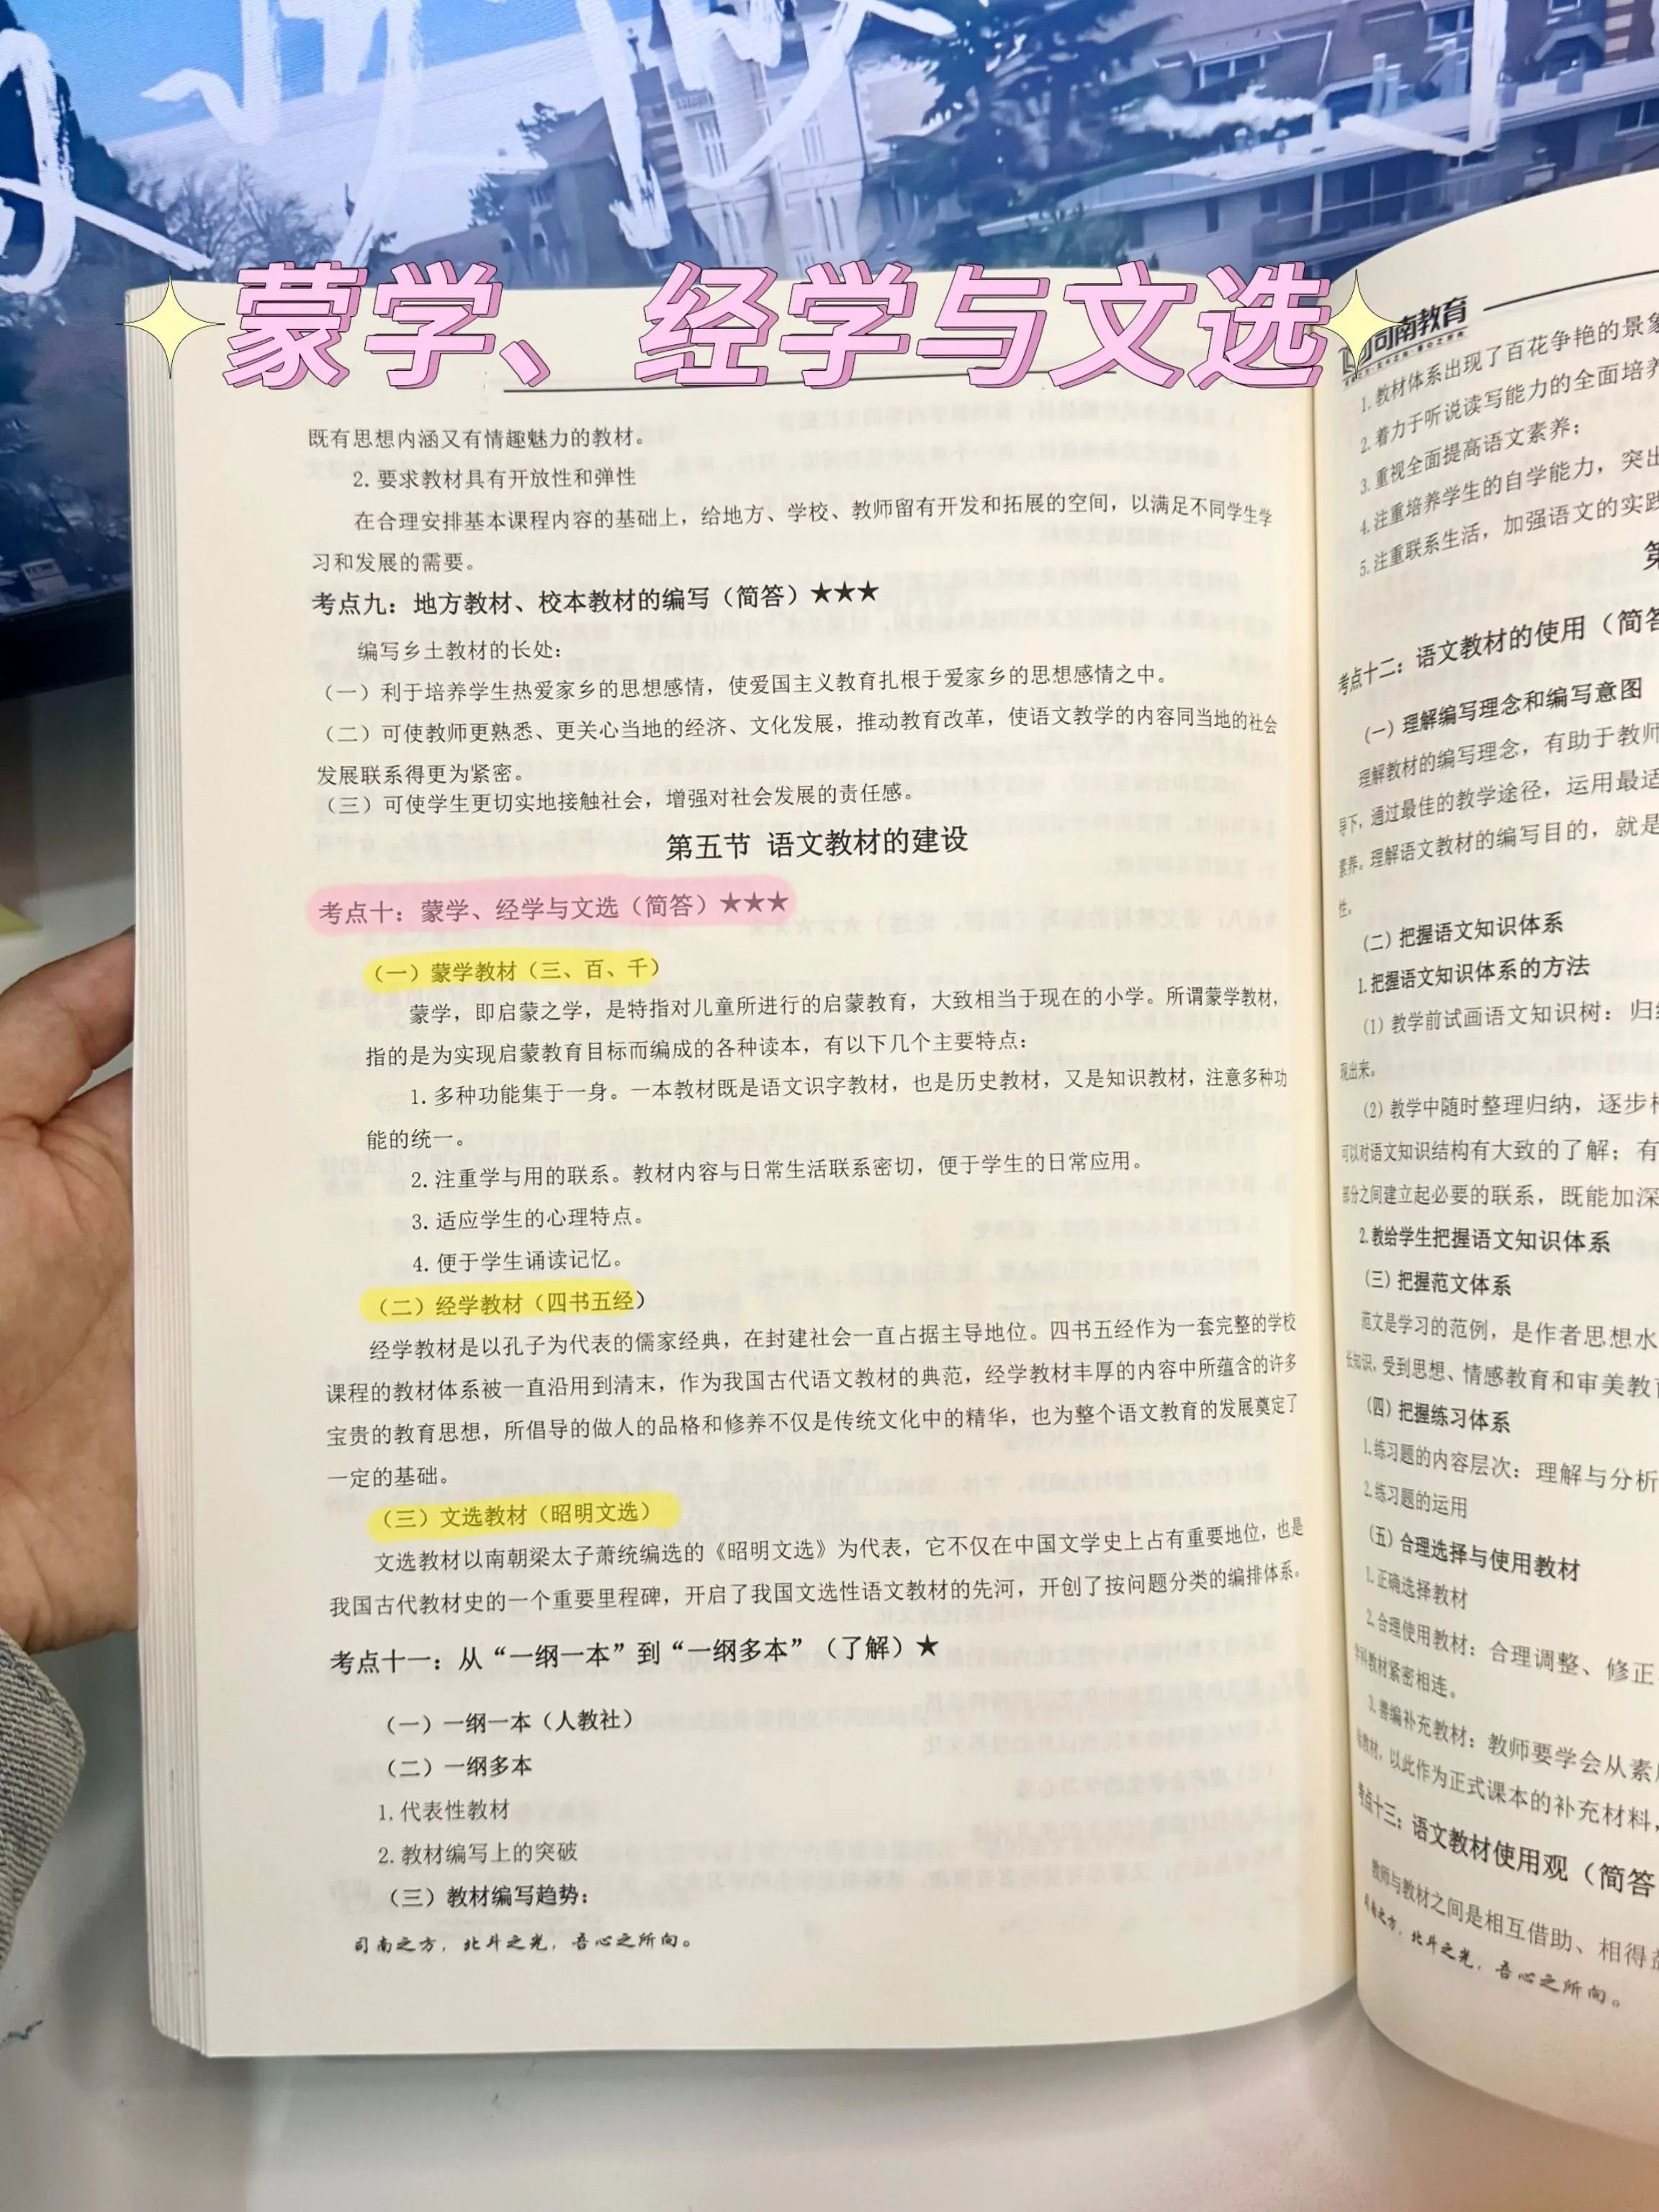 蒙学、经学与文选
既有思想内涵又有情趣魅力的教材。
2.要求教材具有开放性和弹性
在合理安排基本课程内容的基础上，给地方、学校、教师留有开发和拓展的空间，以满足不同学生学
习和发展的需要。
考点九：地方教材、校本教材的编写（简答）★★★
编写乡土教材的长处：
（一）利于培养学生热爱家乡的思想感情，使爱国主义教育扎根于爱家乡的思想感情之中。
（二）可使教师更熟悉、更关心当地的经济、文化发展，推动教育改革，使语文教学的内容同当地的社会
发展联系得更为紧密。
（三）可使学生更切实地接触社会，增强对社会发展的责任感。
第五节 语文教材的建设
考点十：蒙学、经学与文选（简答）★★★
（一）蒙学教材（三、百、千）
蒙学，即启蒙之学，是特指对儿童所进行的启蒙教育，大致相当于现在的小学。所谓蒙学教材，
指的是为实现启蒙教育目标而编成的各种读本，有以下几个主要特点：
1.多种功能集于一身。一本教材既是语文识字教材，也是历史教材，又是知识教材，注意多种功
能的统一。
2.注重学与用的联系。教材内容与日常生活联系密切，便于学生的日常应用。
3.适应学生的心理特点。
4.便于学生诵读记忆。
（二）经学教材（四书五经）
经学教材是以孔子为代表的儒家经典，在封建社会一直占据主导地位。四书五经作为一套完整的学校
课程的教材体系被一直沿用到清末，作为我国古代语文教材的典范，经学教材丰厚的内容中所蕴含的许多
宝贵的教育思想，所倡导的做人的品格和修养不仅是传统文化中的精华，也为整个语文教育的发展奠定了
一定的基础。
（三）文选教材（昭明文选）
文选教材以南朝梁太子萧统编选的《昭明文选》为代表，它不仅在中国文学史上占有重要地位，也是
我国古代教材史的一个重要里程碑，开启了我国文选性语文教材的先河，开创了按问题分类的编排体系。
考点十一：从“一纲一本”到“一纲多本”（了解）★
（一）一纲一本（人教社）
（二）一纲多本
1.代表性教材
2.教材编写上的突破
（三）教材编写趋势：
司南之方，北斗之光，吾心之所向。
司南教育
1.教材体系出现了百花争艳的景象
2.着力于听说读写能力的全面培养
3.重视全面提高语文素养；
4.注重培养学生的自学能力，突出
5.注重联系生活，加强语文的实践
第
考点十二：语文教材的使用（简答
（一）理解编写理念和编写意图
理解教材的编写理念，有助于教师
导下，通过最佳的教学途径，运用最适
素养。理解语文教材的编写目的，就是
性。
（二）把握语文知识体系
1.把握语文知识体系的方法
（1）教学前试画语文知识树：归纳
现出来。
（2）教学中随时整理归纳，逐步
可以对语文知识结构有大致的了解；有
部分之间建立起必要的联系，既能加深
2.教给学生把握语文知识体系
（三）把握范文体系
范文是学习的范例，是作者思想水
长知识，受到思想、情感教育和审美教育
（四）把握练习体系
1.练习题的内容层次：理解与分析
2.练习题的运用
（五）合理选择与使用教材
1.正确选择教材
2.合理使用教材：合理调整、修正
学科教材紧密相连。
3.善编补充教材：教师要学会从素
教材，以此作为正式课本的补充材料，
考点十三：语文教材使用观（简答
教师与教材之间是相互借助、相得益
司南之方，北斗之光，吾心之所向。